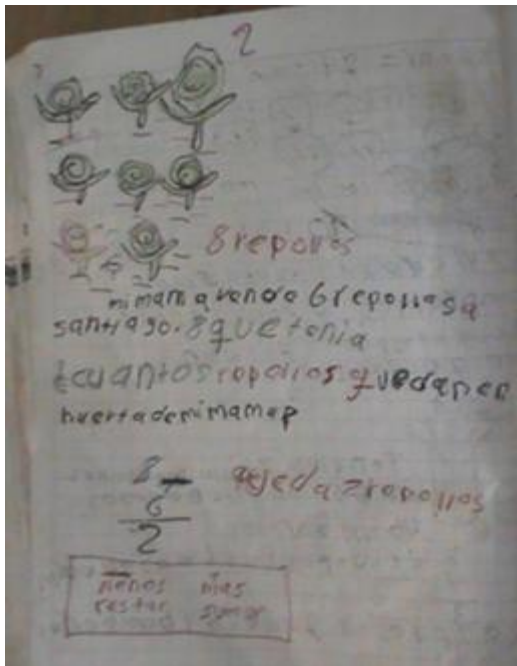 2
8 repollos
mi mama vende 6 repollos a
santiago. 8 que tenia
¿cuantos repollos quedan en
huerta de mi mama?
8 -
6
2
queda 2 repollos
menos mas
restar sumar